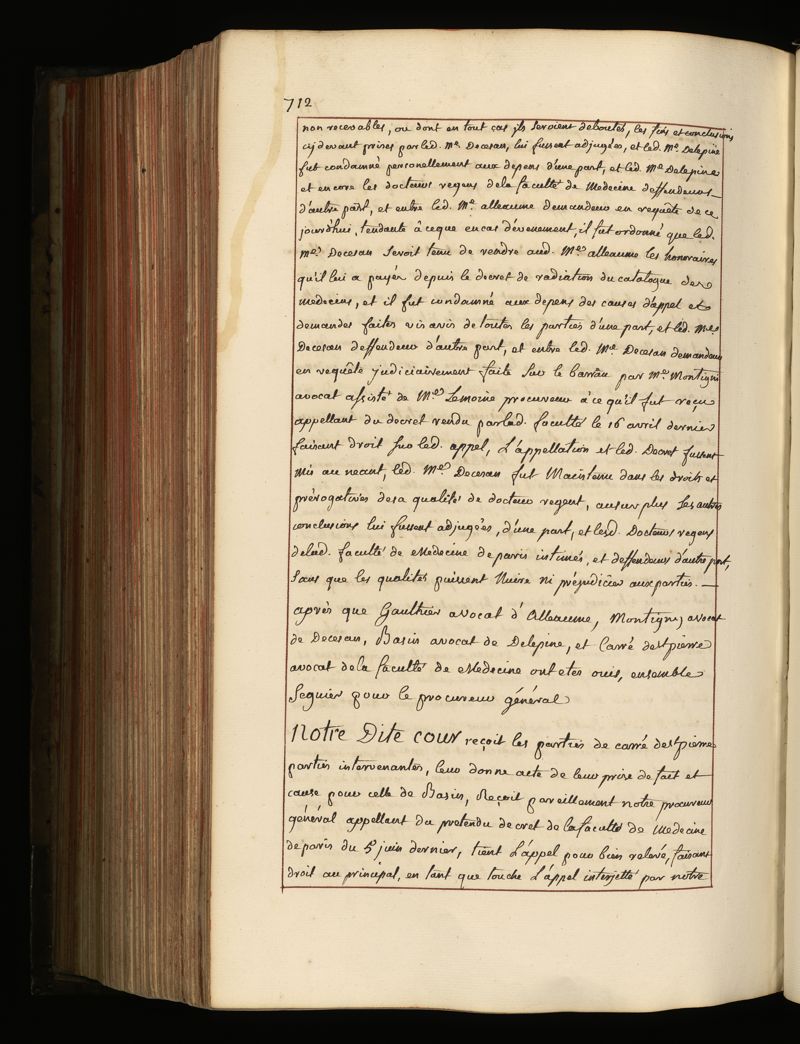 712
non recevables, ou dont en tout cas ils seroient deboutés, les fins et conclusions
cy devant prises par led. Me. Decesan, lui fussent adjugées, et led. Me. Delepine
fut condamné personellement aux depens d'une part, et led. Me Delepine
et encore les docteurs regens dela faculté de Medecine deffendeurs
d'autre part, et entre led. Me. alleaume demandeur en requête de ce
jourd'hui, tendante à ceque en cas d'évenement, il fut ordonné que led.
Me. Decesan seroit tenu de rendre aud. Me. alleaume les honoraires
qu'il lui a payés depuis le decret de radiation du catalogue des
medecins, et il fut condamné aux depens des causes d'appel et
demandes faites vis avis de toutes les parties d'une part, et led. Me
Decesan deffendeur d'autre part, et entre led. Me. Decesan demandeur
en requête judiciairement faite sur le barrau par Me. Montigni
avocat assisté de Me. Lemoine procureur a ce qu'il fut reçu
appellant du decret rendu par lad. faculté le 16 avril dernier
faisant droit sur led. appel, L'appellation et led. Decret fussent
mis au neant, led. Me. Decesan fut Maintenu dans les droits et
prérogatives desa qualité de docteur regent, au surplus Les autres
conclusions lui fussent adjugées, d'une part, et lesd. Docteurs regens
delad. faculté de Medecine de paris intimés, et deffendeurs d'autre part,
Sans que les qualités puissent Nuire ni préjudicier aux parties. —
après que Gaulthier avocat d'Alleaume, Montigny avocat
de Decesan, Basin avocat de Delepine, et Carré de St pierre
avocat dela faculté de Medecine ont etés ouis, ensemble
Seguier pour le procureur général
Notre Dite cour reçoit les parties de carré de St pierre
parties intervenantes, leur donne acte de leur prise de fait et
cause pour celle de Basin, Reçoit pareillement notre procureur
général appellant du pretendu decret de la faculté de Medecine
de paris du 5 juin dernier, tient L'appel pour bien relevé, faisant
droit au principal, en tant que touche L'appel interjetté par notre